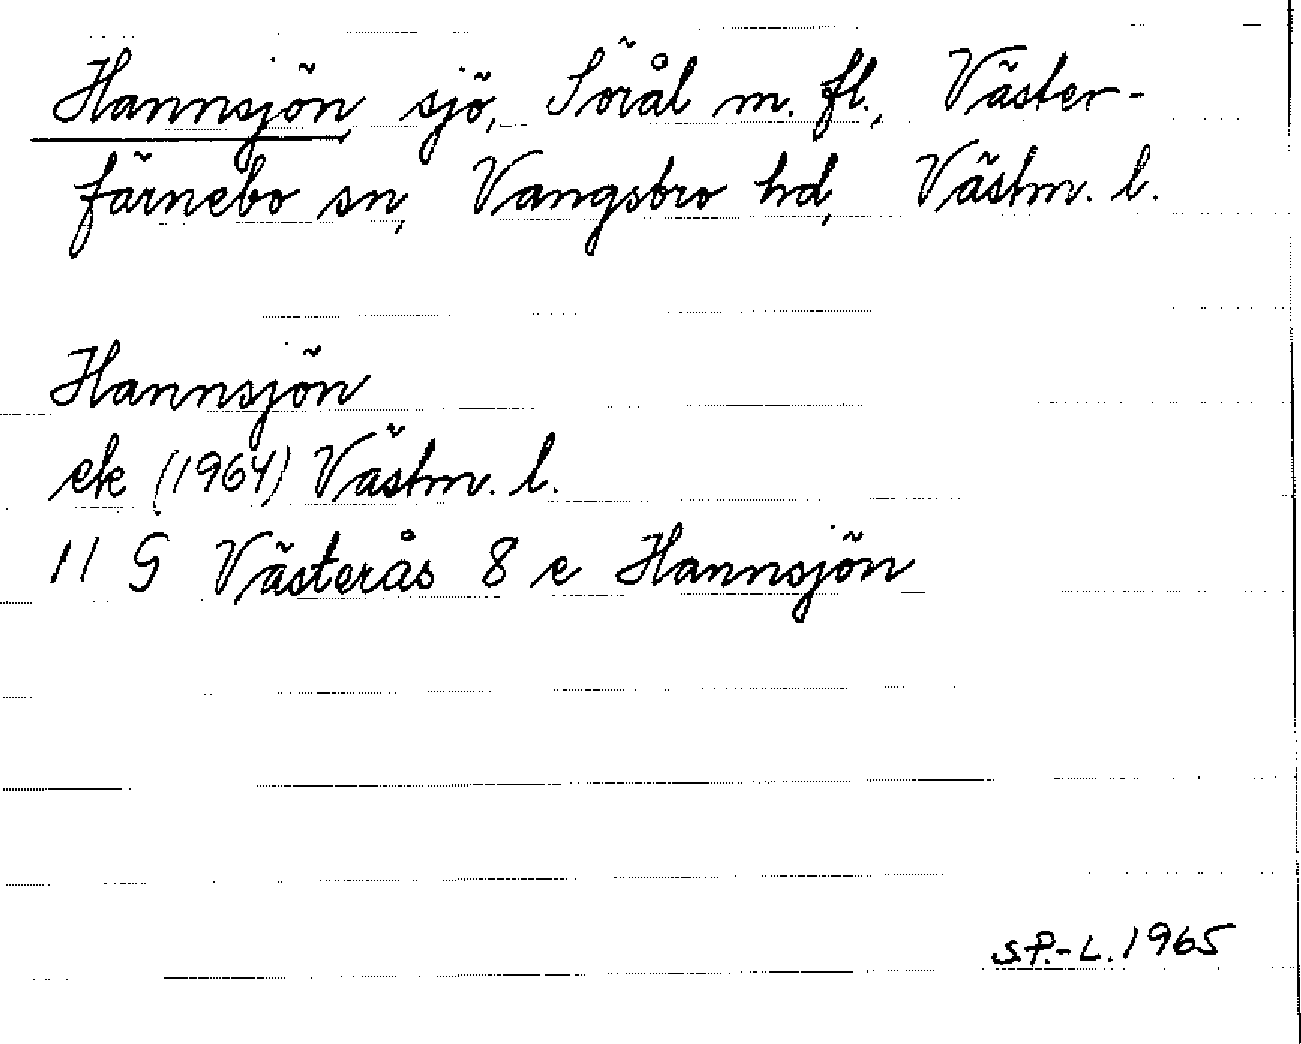 Hannsjön, sjö, Sörål m. fl., Väster-
färnebo sn, Vangsbro hd, Västm. l.
Hannsjön
ek (1964) Västm. l.
11 G Västerås 8 e Hannsjön
S.P.-L. 1965